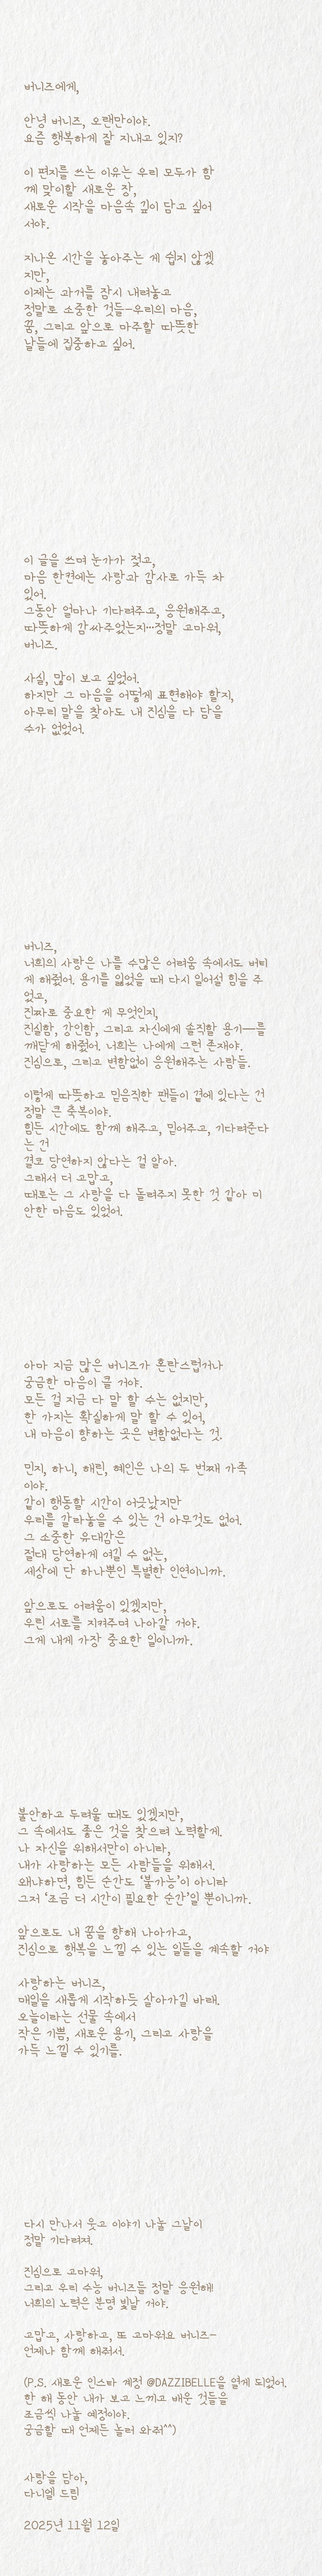 버니즈에게,
안녕 버니즈, 오랜만이야.
요즘 행복하게 잘 지내고 있지?
이 편지를 쓰는 이유는 우리 모두가 함
께 맞이할 새로운 장,
새로운 시작을 마음속 깊이 담고 싶어
서야.
지나온 시간을 놓아주는 게 쉽지 않겠
지만,
이제는 과거를 잠시 내려놓고
정말로 소중한 것들—우리의 마음,
꿈, 그리고 앞으로 마주할 따뜻한
날들에 집중하고 싶어.
이 글을 쓰며 눈가가 젖고,
마음 한켠에는 사랑과 감사로 가득 차
있어.
그동안 얼마나 기다려주고, 응원해주고,
따뜻하게 감싸주었는지…정말 고마워,
버니즈.
사실, 많이 보고 싶었어.
하지만 그 마음을 어떻게 표현해야 할지,
아무리 말을 찾아도 내 진심을 다 담을
수가 없었어.
버니즈,
너희의 사랑은 나를 수많은 어려움 속에서도 버티
게 해줬어. 용기를 잃었을 때 다시 일어설 힘을 주
었고,
진짜로 중요한 게 무엇인지,
진실함, 강인함, 그리고 자신에게 솔직할 용기——를
깨닫게 해줬어. 너희는 나에게 그런 존재야.
진심으로, 그리고 변함없이 응원해주는 사람들.
이렇게 따뜻하고 믿음직한 팬들이 곁에 있다는 건
정말 큰 축복이야.
힘든 시간에도 함께 해주고, 믿어주고, 기다려준다
는 건
결코 당연하지 않다는 걸 알아.
그래서 더 고맙고,
때로는 그 사랑을 다 돌려주지 못한 것 같아 미
안한 마음도 있었어.
아마 지금 많은 버니즈가 혼란스럽거나
궁금한 마음이 클 거야.
모든 걸 지금 다 말 할 수는 없지만,
한 가지는 확실하게 말 할 수 있어,
내 마음이 향하는 곳은 변함없다는 것.
민지, 하니, 해린, 혜인은 나의 두 번째 가족
이야.
같이 행동할 시간이 어긋났지만
우리를 갈라놓을 수 있는 건 아무것도 없어.
그 소중한 유대감은
절대 당연하게 여길 수 없는,
세상에 단 하나뿐인 특별한 인연이니까.
앞으로도 어려움이 있겠지만,
우린 서로를 지켜주며 나아갈 거야.
그게 내게 가장 중요한 일이니까.
불안하고 두려울 때도 있겠지만,
그 속에서도 좋은 것을 찾으려 노력할게.
나 자신을 위해서만이 아니라,
내가 사랑하는 모든 사람들을 위해서.
왜냐하면, 힘든 순간도 ‘불가능’이 아니라
그저 ‘조금 더 시간이 필요한 순간’일 뿐이니까.
앞으로도 내 꿈을 향해 나아가고,
진심으로 행복을 느낄 수 있는 일들을 계속할 거야
사랑하는 버니즈,
매일을 새롭게 시작하듯 살아가길 바래.
오늘이라는 선물 속에서
작은 기쁨, 새로운 용기, 그리고 사랑을
가득 느낄 수 있기를.
다시 만나서 웃고 이야기 나눌 그날이
정말 기다려져.
진심으로 고마워,
그리고 우리 수능 버니즈들 정말 응원해!
너희의 노력은 분명 빛날 거야.
고맙고, 사랑하고, 또 고마워요 버니즈—
언제나 함께 해줘서.
(P.S. 새로운 인스타 계정 @DAZZIBELLE을 열게 되었어.
한 해 동안 내가 보고 느끼고 배운 것들을
조금씩 나눌 예정이야.
궁금할 때 언제든 놀러 와줘!^^)
사랑을 담아,
다니엘 드림
2025년 11월 12일